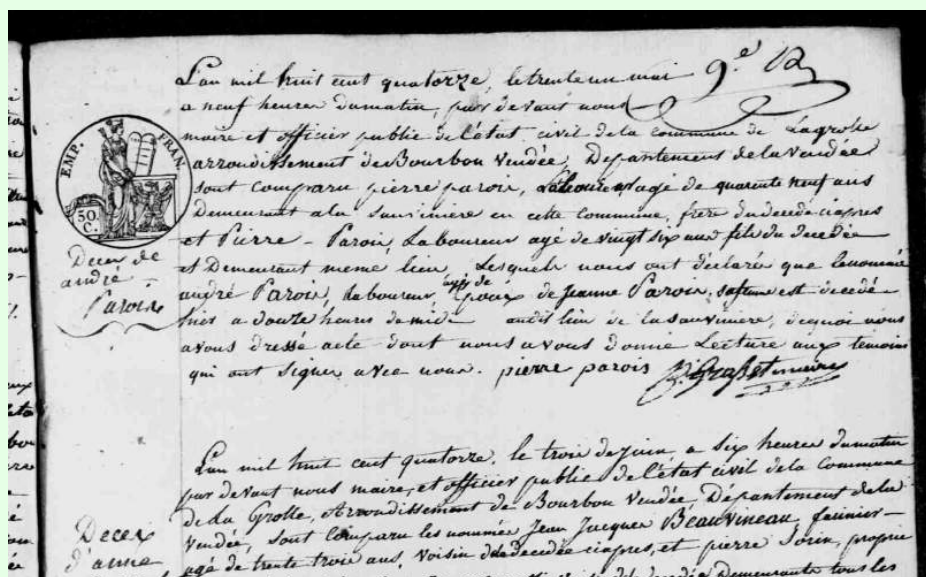 L'an mil huit cent quatorze, le trente un mai 9.e
a neuf heures du matin, par devant nous
maire et officier public de l'état civil de la commune de Lagrolle
arrondissement de Bourbon Vendée, Departement de la Vendée
sont comparu pierre parois, agé de quarente neuf ans
Demeurant a la Sauviniere en cette commune, frere du decedé ciapres
et Pierre - Parois, Laboureur agé de vingt six ans fils du Decedée
et Demeurant meme lieu, Lesquels nous ont déclarée que lenommé
andré Parois, Laboureur, Epoux de Jeanne Parois, est decedé
hier a douze heures de midi audit lieu de la sauviniere, dequoi nous
avons dresse acte dont nous avons donne Lecture aux temoins
qui ont signer avec nous. pierre parois
EMP. FRAN
50
C.
Deces de
andré
Parois
L'an mil huit cent quatorze, le trois de juin, a six heures du matin
par devant nous maire, et officier public de l'état civil de la Commune
de La Grolle, Arrondissement de Bourbon Vendée, Département de la
Vendée, sont comparu les nommée Jean Jacques Beauvineau, farinier -
agé de trente trois ans, voisin de decedée ciapres, et pierre Sorin, proprie
Decex
d'anne
decedée Demeurants tous les